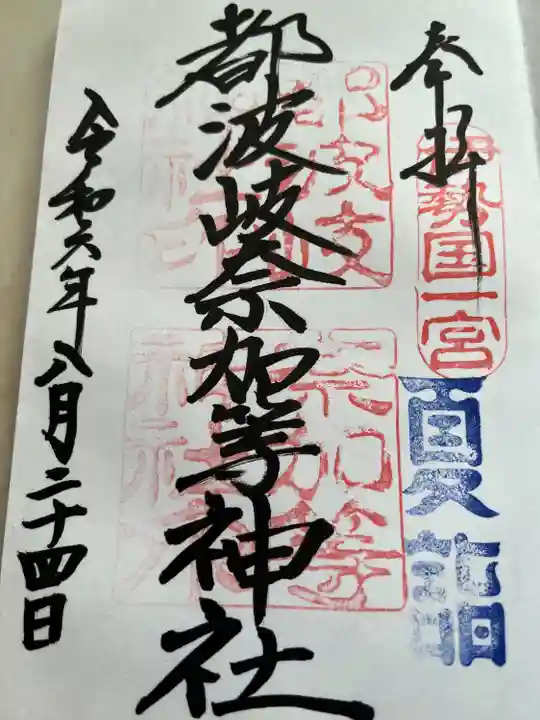 奉拝
伊勢国一宮
夏詣
都波岐奈加等神社
令和六年八月二十四日